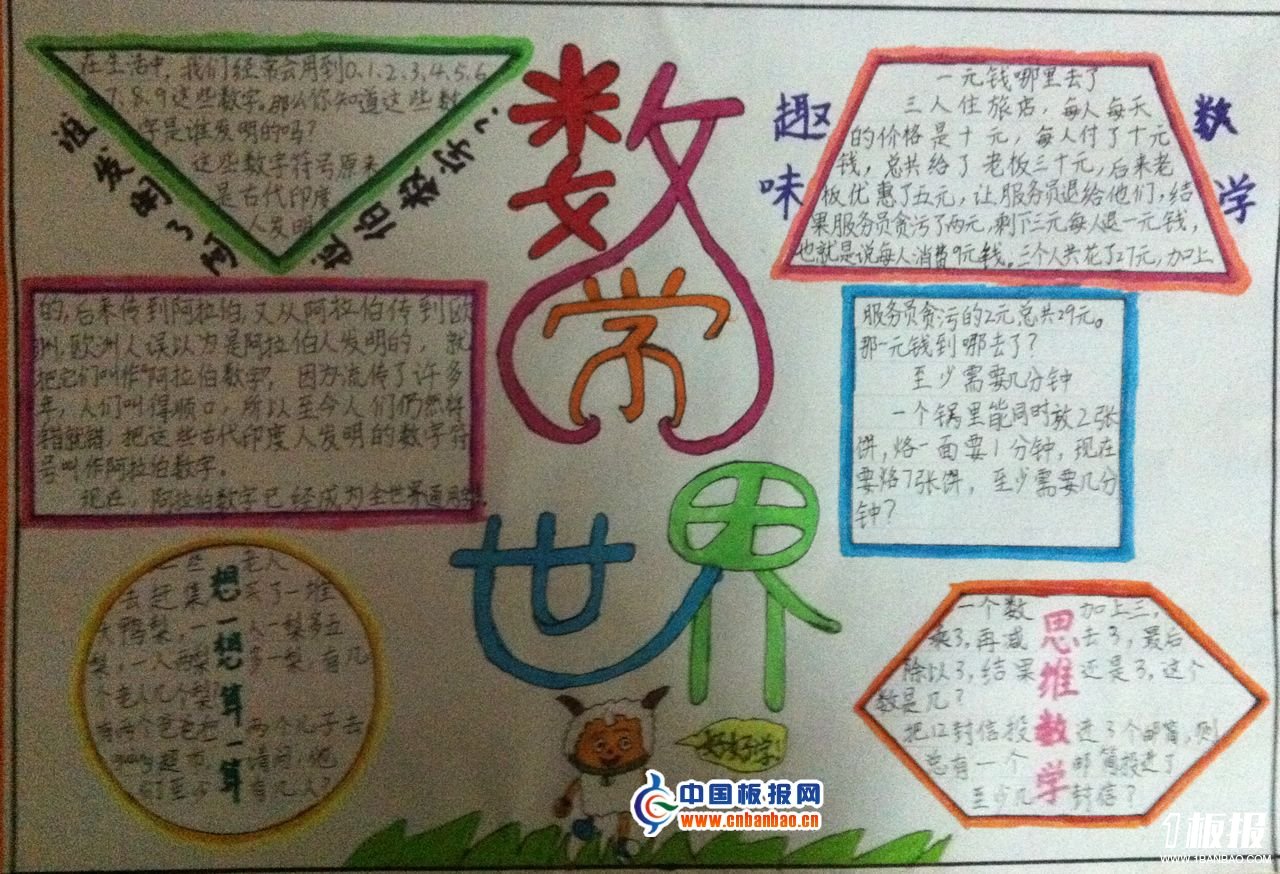 数学世界
谁发明了阿拉伯数字?
在生活中,我们经常会用到0.1.2.3.4.5.6
7.8.9这些数字。那么你知道这些数
字是谁发明的吗?
这些数字符号原来
是古代印度
人发明
的,后来传到阿拉伯,又从阿拉伯传到欧
洲,欧洲人误以为是阿拉伯人发明的,就
把它们叫作“阿拉伯数字”,因为流传了许多
年,人们叫得顺口,所以至今人们仍然将
错就错,把这些古代印度人发明的数字符
号叫作阿拉伯数字。
现在,阿拉伯数字已经成为全世界通用
想一想算一算
老人
去赶集 买了一堆
大鸭梨,一人一梨多五
梨,一人两梨 多一梨,有几
个老人几个梨
有两个爸爸和 两个儿子去
guang超市, 请问,他
们至少 有几人?
趣味数学
一元钱哪里去了
三人住旅店,每人每天
的价格是十元,每人付了十元
钱,总共给了老板三十元,后来老
板优惠了五元,让服务员退给他们,结
果服务员贪污了两元,剩下三元每人退一元钱,
也就是说每人消费9元钱。三个人共花了27元,加上
服务员贪污的2元总共29元。
那一元钱到哪去了?
至少需要几分钟
一个锅里能同时放2张
饼,烙一面要1分钟,现在
要烙7张饼,至少需要几分
钟?
思维数学
一个数 加上三,
乘3,再减 去3,最后
除以3,结果 还是3,这个
数是几?
把12封信投 进3个邮筒,则
总有一个 邮筒投进了
至少几 封信?
好好学!
中国板报网
www.cnbanbao.cn
1板报
WWW.1BANBAO.COM